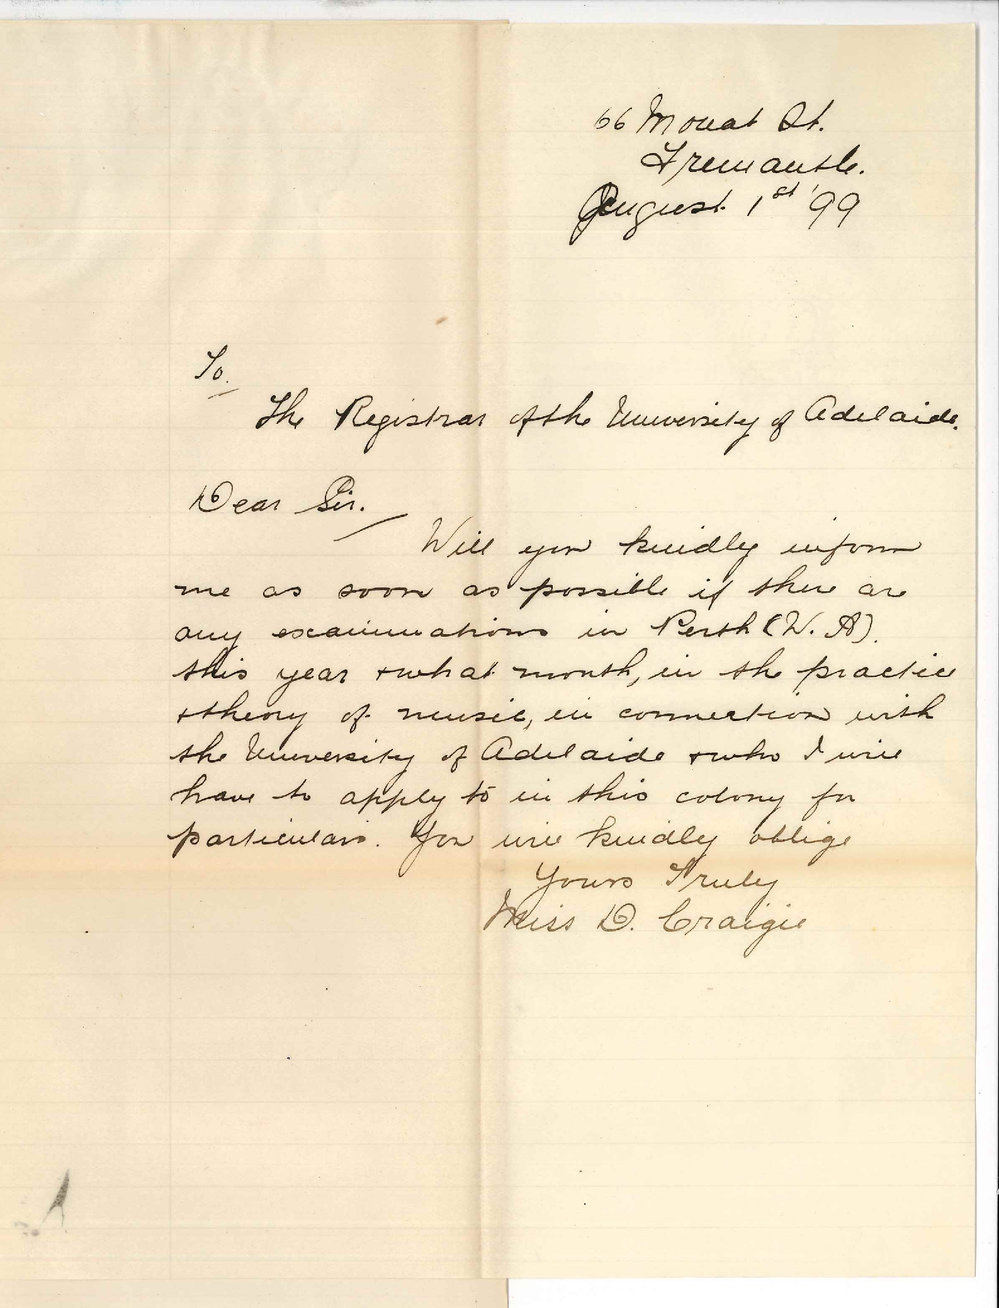 66 Mouat St.
Fremantle.
August 1st '99
To.
The Registrar of the University of Adelaide.
Dear Sir.
Will you kindly inform
me as soon as possible if there are
any examinations in Perth (W. A).
this year + what month, in the practice
+ theory of music, in connection with
the University of Adelaide + who I will
have to apply to in this colony for
particulars. You will kindly oblige
Yours Truly
Miss D. Craigie